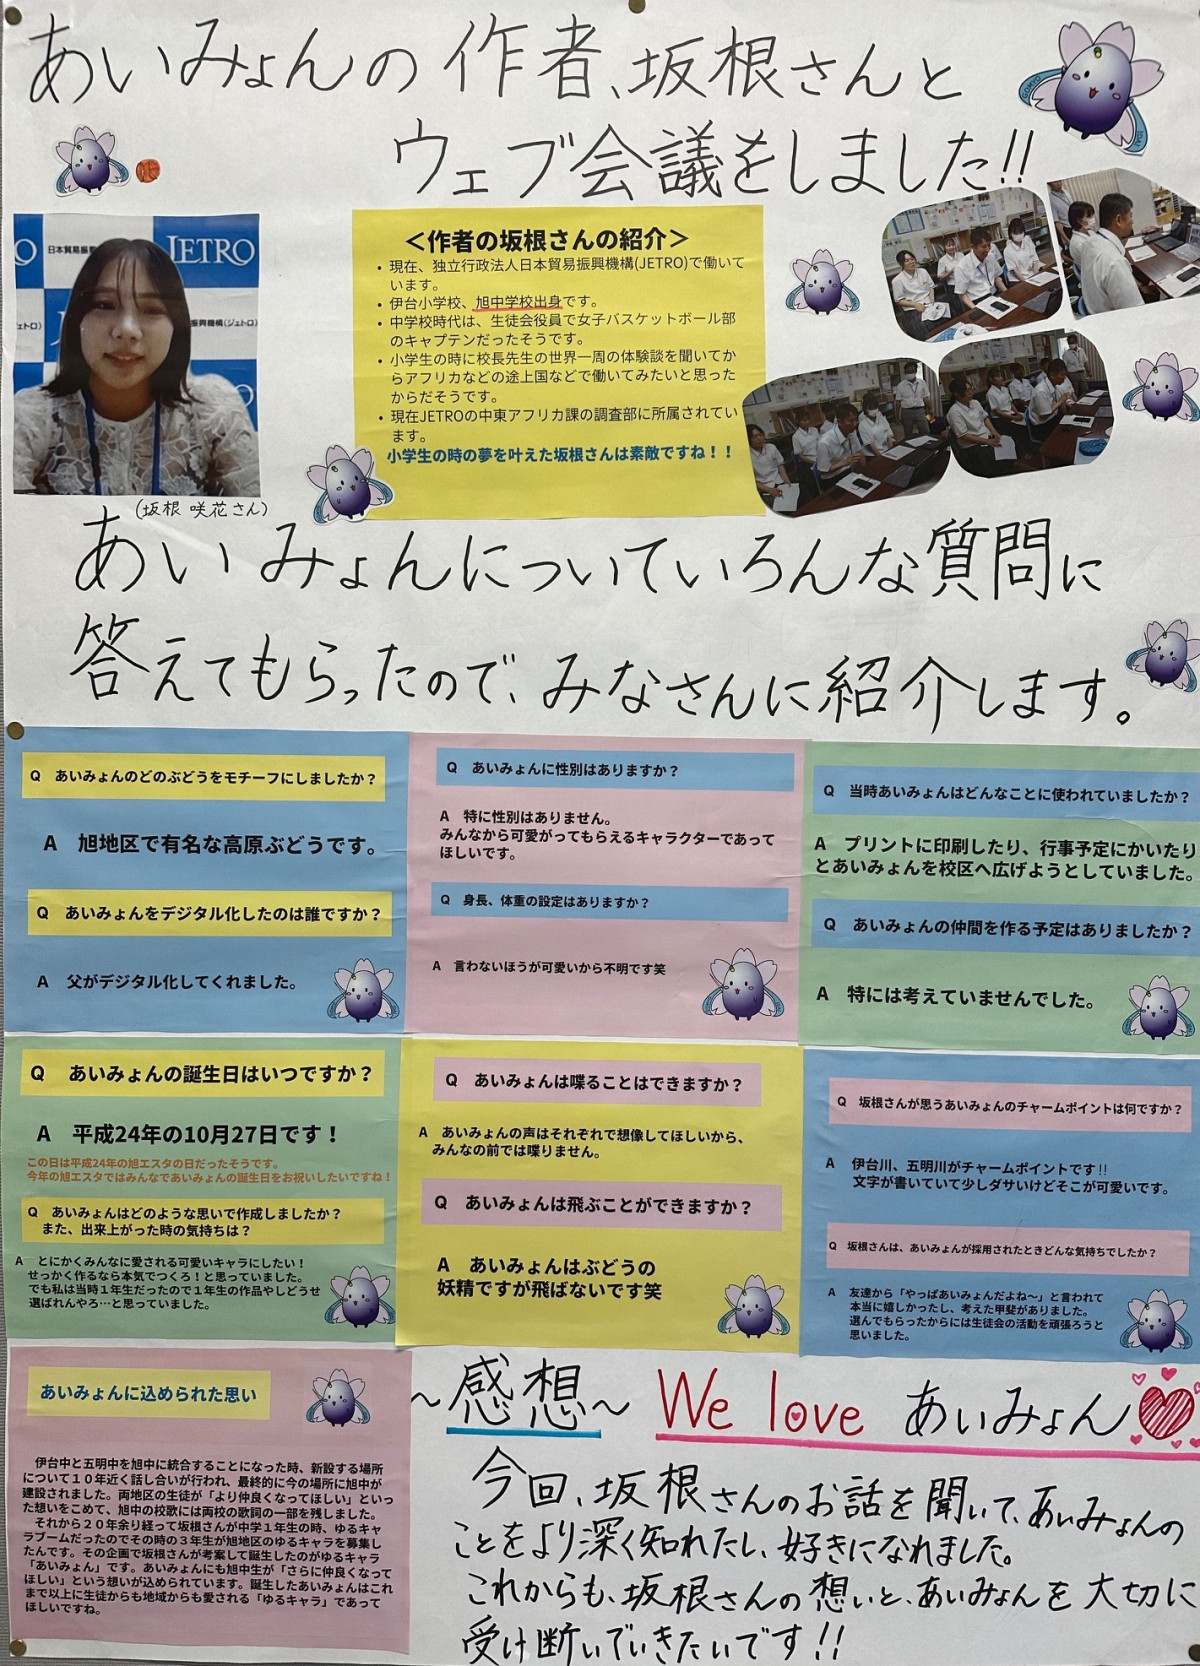 あいみょんの作者、坂根さんと
ウェブ会議をしました!!
日本貿易振
JETRO
振興機構(ジェトロ)
(坂根 咲花さん)
<作者の坂根さんの紹介>
• 現在、独立行政法人日本貿易振興機構(JETRO)で働いて
います。
• 伊台小学校、旭中学校出身です。
• 中学校時代は、生徒会役員で女子バスケットボール部
のキャプテンだったそうです。
• 小学生の時に校長先生の世界一周の体験談を聞いてか
らアフリカなどの途上国などで働いてみたいと思った
からだそうです。
• 現在JETROの中東アフリカ課の調査部に所属されてい
ます。
小学生の時の夢を叶えた坂根さんは素敵ですね！！
あいみょんについていろんな質問に
答えてもらったので、みなさんに紹介します。
Q あいみょんのどのぶどうをモチーフにしましたか？
A 旭地区で有名な高原ぶどうです。
Q あいみょんをデジタル化したのは誰ですか？
A 父がデジタル化してくれました。
Q あいみょんに性別はありますか？
A 特に性別はありません。
みんなから可愛がってもらえるキャラクターであって
ほしいです。
Q 身長、体重の設定はありますか？
A 言わないほうが可愛いから不明です笑
Q 当時あいみょんはどんなことに使われていましたか？
A プリントに印刷したり、行事予定にかいたり
とあいみょんを校区へ広げようとしていました。
Q あいみょんの仲間を作る予定はありましたか？
A 特には考えていませんでした。
Q あいみょんの誕生日はいつですか？
A 平成24年の10月27日です！
この日は平成24年の旭エスタの日だったそうです。
今年の旭エスタではみんなであいみょんの誕生日をお祝いしたいですね！
Q あいみょんはどのような思いで作成しましたか？
また、出来上がった時の気持ちは？
A とにかくみんなに愛される可愛いキャラにしたい！
せっかく作るなら本気でつくろ！と思っていました。
でも私は当時１年生だったので１年生の作品やしどうせ
選ばれんやろ…と思っていました。
Q あいみょんは喋ることはできますか？
A あいみょんの声はそれぞれで想像してほしいから、
みんなの前では喋りません。
Q あいみょんは飛ぶことができますか？
A あいみょんはぶどうの
妖精ですが飛ばないです笑
Q 坂根さんが思うあいみょんのチャームポイントは何ですか？
A 伊台川、五明川がチャームポイントです!!
文字が書いていて少しダサいけどそこが可愛いです。
Q 坂根さんは、あいみょんが採用されたときどんな気持ちでしたか？
A 友達から「やっぱあいみょんだよね〜」と言われて
本当に嬉しかったし、考えた甲斐がありました。
選んでもらったからには生徒会の活動を頑張ろうと
思いました。
あいみょんに込められた思い
伊台中と五明中を旭中に統合することになった時、新設する場所
について１０年近く話し合いが行われ、最終的に今の場所に旭中が
建設されました。両地区の生徒が「より仲良くなってほしい」といっ
た想いをこめて、旭中の校歌には両校の歌詞の一部を残しました。
それから２０年余り経って坂根さんが中学１年生の時、ゆるキャ
ラブームだったのでその時の３年生が旭地区のゆるキャラを募集し
たんです。その企画で坂根さんが考案して誕生したのがゆるキャラ
「あいみょん」です。あいみょんにも旭中生が「さらに仲良くなって
ほしい」という想いが込められています。誕生したあいみょんはこれ
まで以上に生徒からも地域からも愛される「ゆるキャラ」であって
ほしいですね。
〜感想〜 We love あいみょん
今回、坂根さんのお話を聞いて、あいみょんの
ことをより深く知れたし、好きになれました。
これからも、坂根さんの想いと、あいみょんを大切に
受け断いでいきたいです!!